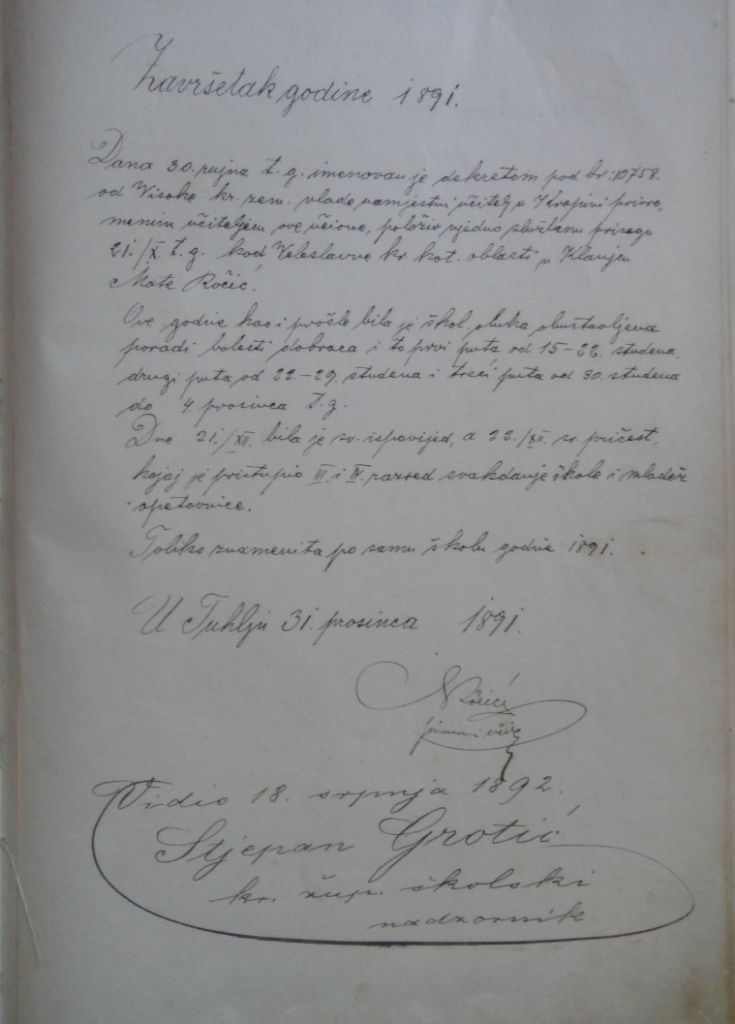 Završetak godine 1891.
Dana 30. rujna t. g. imenovan je dekretom pod br. 10758.
od Visoke kr. zem. vlade namjestni učitelj u Krapini privre-
menim učiteljem ove učione, položiv ujedno službenu prisegu
21./X. t. g. kod Veleslavne kr. kot. oblasti u Klanjcu
Mate Ročić.
Ove godine kao i prošle bila je škol. obuka obustavljena
poradi bolesti dobraca i to prvi puta od 15–22. studena,
drugi puta od 22.–29. studena i treći puta od 30. studena
do 4. prosinca t. g.
Dne 21./XII. bila je sv. ispovijed, a 22./XII. sv. pričest,
kojoj je pristupio III. i IV. razred svakdanje škole i mladež
opetovnice.
Toliko znamenita po samu školu godine 1891.
U Tuhlju 31. prosinca 1891.
Ročić
Vidio 18. srpnja 1892.
Stjepan Grotić
kr. žup. školski
nadzornik